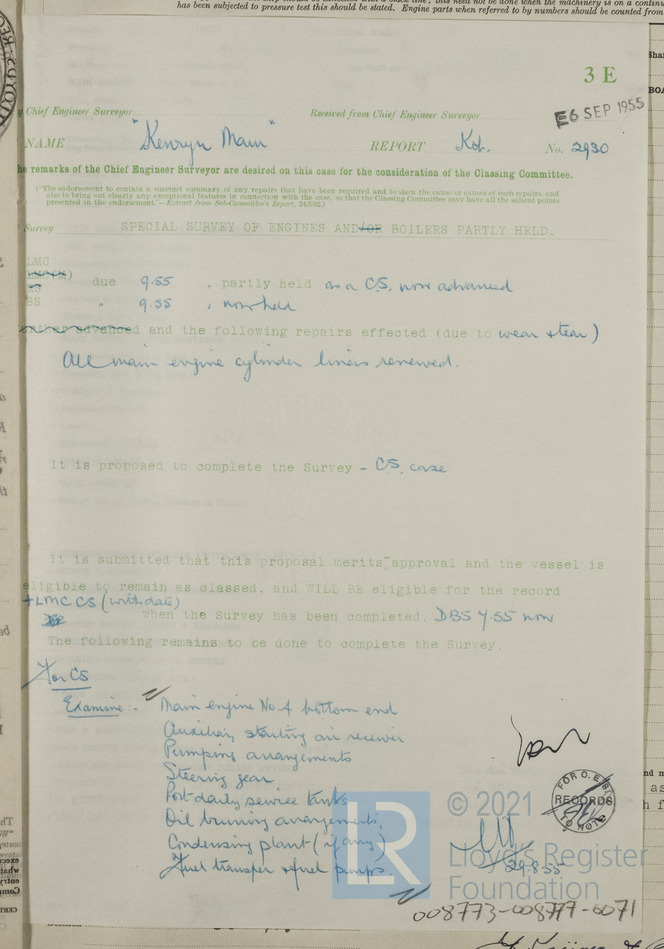 has been subjected to pressure test this should be stated. Engine parts when referred to by numbers should be counted from
3 E
Chief Engineer Surveyor Received from Chief Engineer Surveyor
E6 SEP 1955
NAME "Kenryu Maru" REPORT Kob. No. 2930
he remarks of the Chief Engineer Surveyor are desired on this case for the consideration of the Classing Committee.
("The endorsement to contain a succinct summary of any repairs that have been required and to show the cause or causes of such repairs, and
also to bring out clearly any exceptional features in connection with the case, so that the Classing Committee may have all the salient points
presented in the endorsement."—Extract from Sub-Committee's Report, 24/5/92.)
Survey SPECIAL SURVEY OF ENGINES AND/OR BOILERS PARTLY HELD.
LMC
due 9.55 , partly held as a CS, now advanced
BS " 9.55 , now held
advanced and the following repairs effected (due to wear & tear)
All main engine cylinder liners renewed.
It is proposed to complete the Survey - CS, case
It is submitted that this proposal merits approval and the vessel is
eligible to remain as classed, and WILL BE eligible for the record
+LMC CS (with date)
when the Survey has been completed. DBS 7.55 now
The following remains to be done to complete the Survey.
For CS
Examine:- Main engine No.4 bottom end
Auxiliary starting air receiver
Pumping arrangements
Steering gear
Port daily service tanks
Oil burning arrangements.
Condensing plant (if any)
Fuel transfer & fuel pumps.
RECORDS
29.8.55
LR
© 2021
Lloyd's Register
Foundation
008773-008777-0071